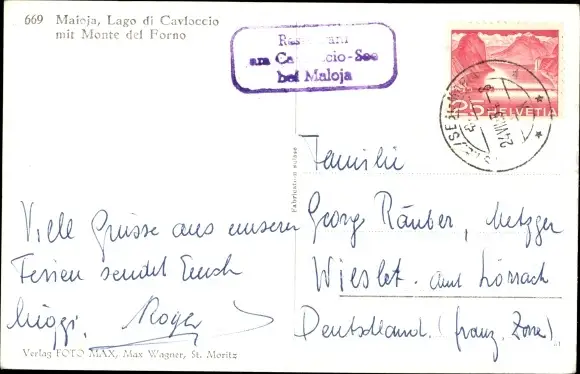 669 Maioja, Lago di Cavloccio
mit Monte del Forno
Restaurant
am Ca cio-See
bei Maloja
25 HELVETIA
Fabrication suisse
Familie
Georg Räuber, Metzger
Wieslet. Amt Lörrach
Deutschland. (franz. Zone)
Viele Grüsse aus unseren
Ferien sendet Euch
Roger
Verlag FOTO MAX, Max Wagner, St. Moritz